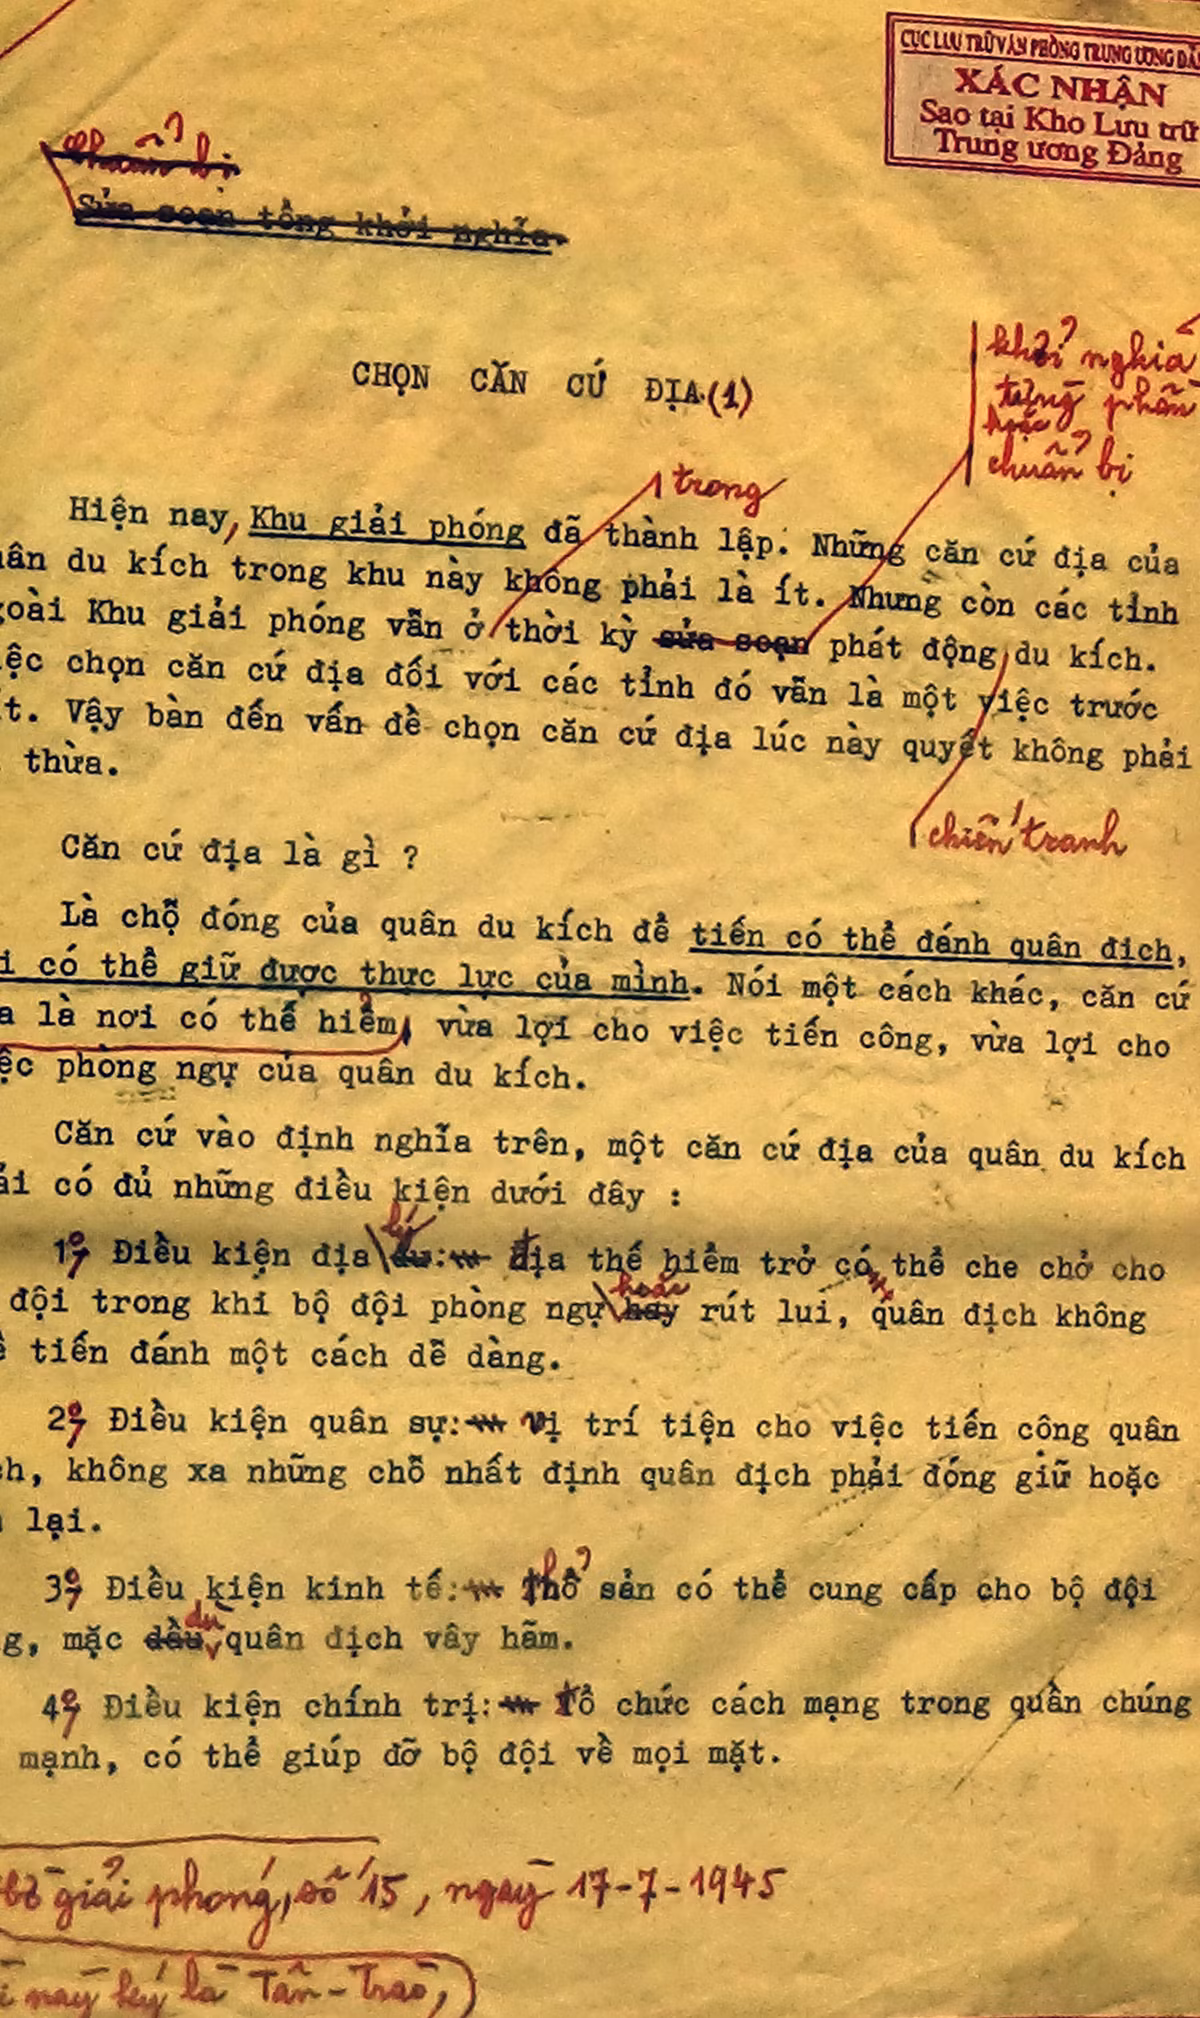 CỤC LƯU TRỮ VĂN PHÒNG TRUNG ƯƠNG ĐẢ
XÁC NHẬN
Sao tại Kho Lưu trữ
Trung ương Đảng
chuẩn bị
Sửa soạn tổng khởi nghĩa.
CHỌN CĂN CỨ ĐỊA (1)
khởi nghĩa
từng phần
hoặc
chuẩn bị
trong
Hiện nay, Khu giải phóng đã thành lập. Những căn cứ địa của
ân du kích trong khu này không phải là ít. Nhưng còn các tỉnh
goài Khu giải phóng vẫn ở thời kỳ sửa soạn phát động du kích.
ệc chọn căn cứ địa đối với các tỉnh đó vẫn là một việc trước
t. Vậy bàn đến vấn đề chọn căn cứ địa lúc này quyết không phải
thừa.
chiến tranh
Căn cứ địa là gì ?
Là chỗ đóng của quân du kích để tiến có thể đánh quân địch,
i có thể giữ được thực lực của mình. Nói một cách khác, căn cứ
a là nơi có thế hiểm, vừa lợi cho việc tiến công, vừa lợi cho
ệc phòng ngự của quân du kích.
Căn cứ vào định nghĩa trên, một căn cứ địa của quân du kích
ải có đủ những điều kiện dưới đây :
lý
1o, Điều kiện địa dư: địa thế hiểm trở có thể che chở cho
hoặc
đội trong khi bộ đội phòng ngự hay rút lui, quân địch không
ể tiến đánh một cách dễ dàng.
2o, Điều kiện quân sự: vị trí tiện cho việc tiến công quân
ch, không xa những chỗ nhất định quân địch phải đóng giữ hoặc
lại.
3o, Điều kiện kinh tế: thổ sản có thể cung cấp cho bộ đội
dù
g, mặc dầu quân địch vây hãm.
4o, Điều kiện chính trị: tổ chức cách mạng trong quần chúng
mạnh, có thể giúp đỡ bộ đội về mọi mặt.
giải phóng, số 15, ngày 17-7-1945
này ký là Tân-Trào,